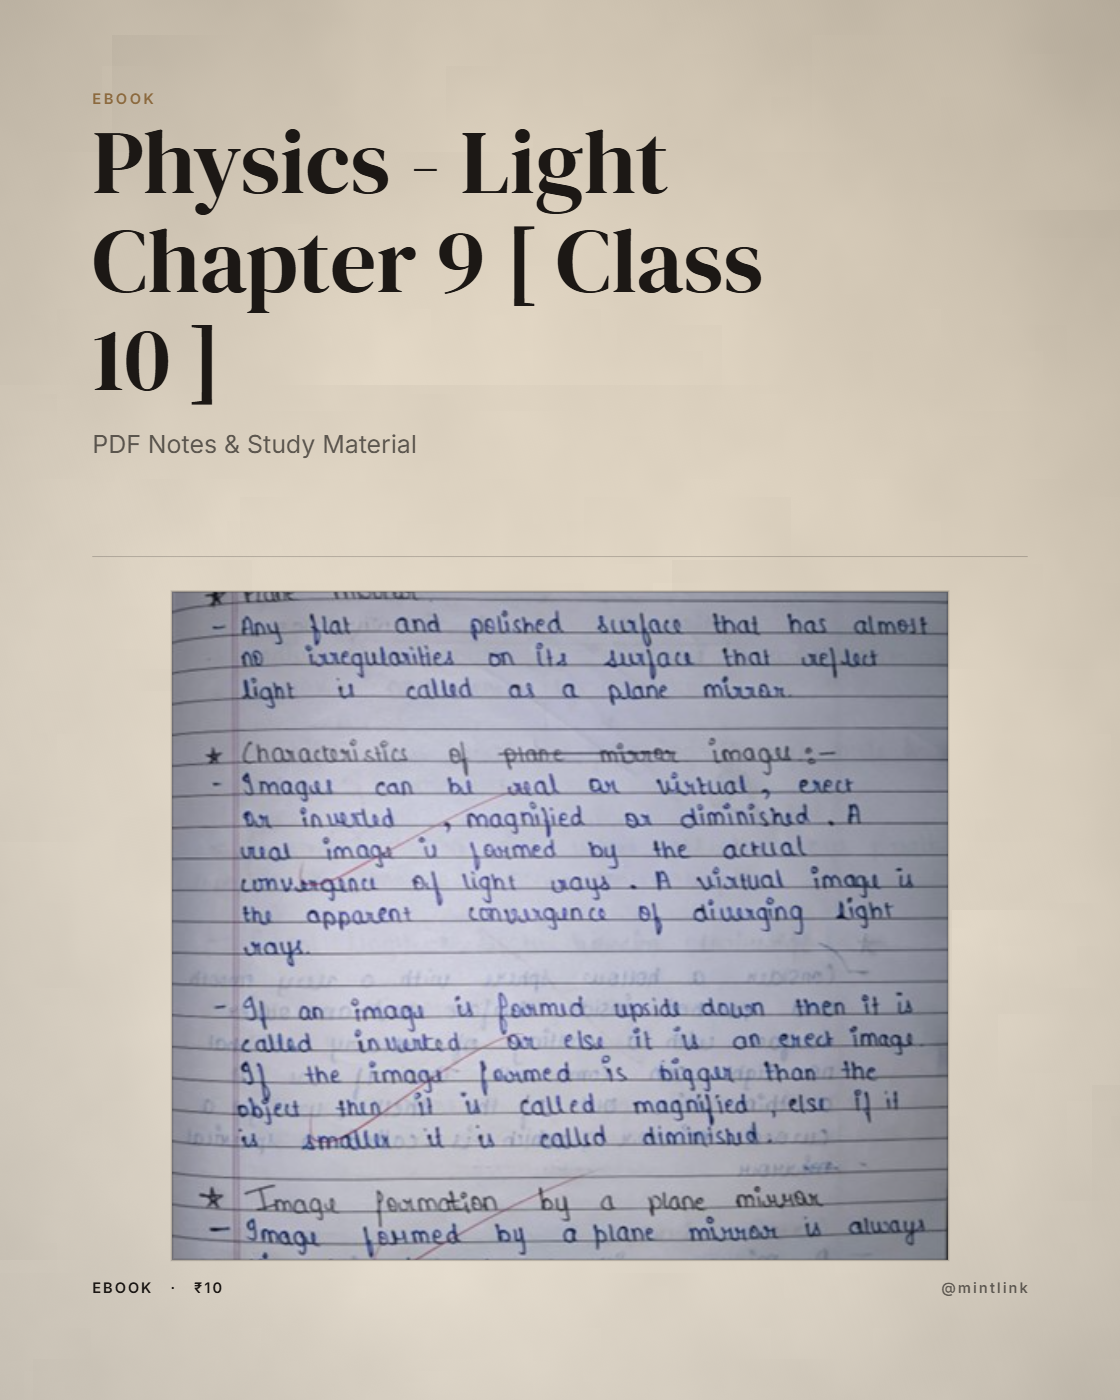 EBOOK
Physics - Light
Chapter 9 [ Class
10 ]
PDF Notes & Study Material
★ Plane mirror
- Any flat and polished surface that has almost
no irregularities on its surface that reflect
light is called as a plane mirror.
★ Characteristics of plane mirror images:-
- Images can be real or virtual, erect
or inverted, magnified or diminished. A
real image is formed by the actual
convergence of light rays. A virtual image is
the apparent convergence of diverging light
rays.
- If an image is formed upside down then it is
called inverted or else it is an erect image.
If the image formed is bigger than the
object then it is called magnified, else if it
is smaller it is called diminished.
★ Image formation by a plane mirror
- Image formed by a plane mirror is always
EBOOK · ₹10
@mintlink